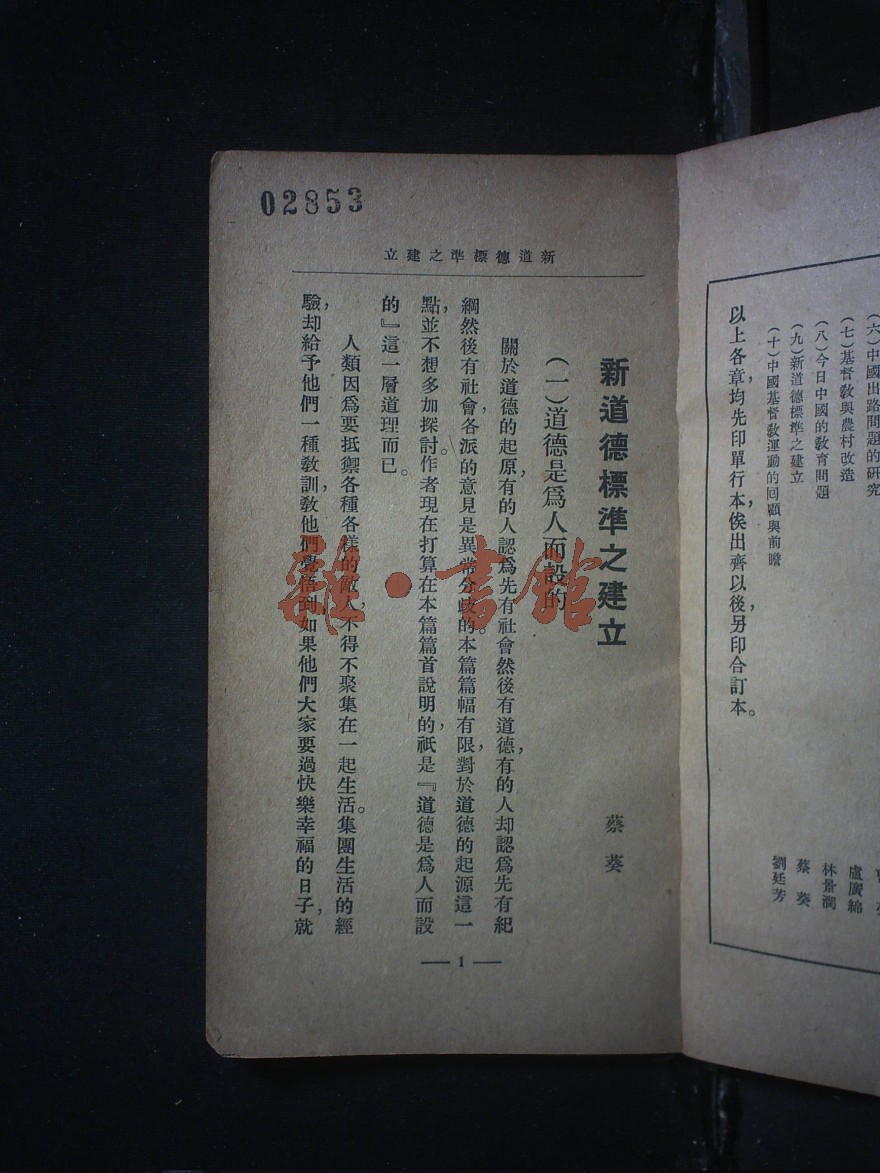 (六)中國出路問題的研究
(七)基督敎與農村改造 盧廣綿
(八)今日中國的敎育問題 林景潤
(九)新道德標準之建立 蔡葵
(十)中國基督敎運動的回顧與前瞻 劉廷芳
以上各章，均先印單行本，俟出齊以後，另印合訂本。
02853
新道德標準之建立
新道德標準之建立 蔡葵
(一)道德是爲人而設的
關於道德的起原，有的人認爲先有社會然後有道德，有的人却認爲先有紀
綱然後有社會，各派的意見是異常分歧的。本篇篇幅有限，對於道德的起源這一
點，並不想多加探討。作者現在打算在本篇篇首說明的，祇是『道德是爲人而設
的』這一層道理而已。
人類因爲要抵禦各種各樣的敵人，不得不聚集在一起生活。集團生活的經
驗，却給予他們一種敎訓，敎他們覺悟到，如果他們大家要過快樂幸福的日子，就
— 1 —
雜·書館